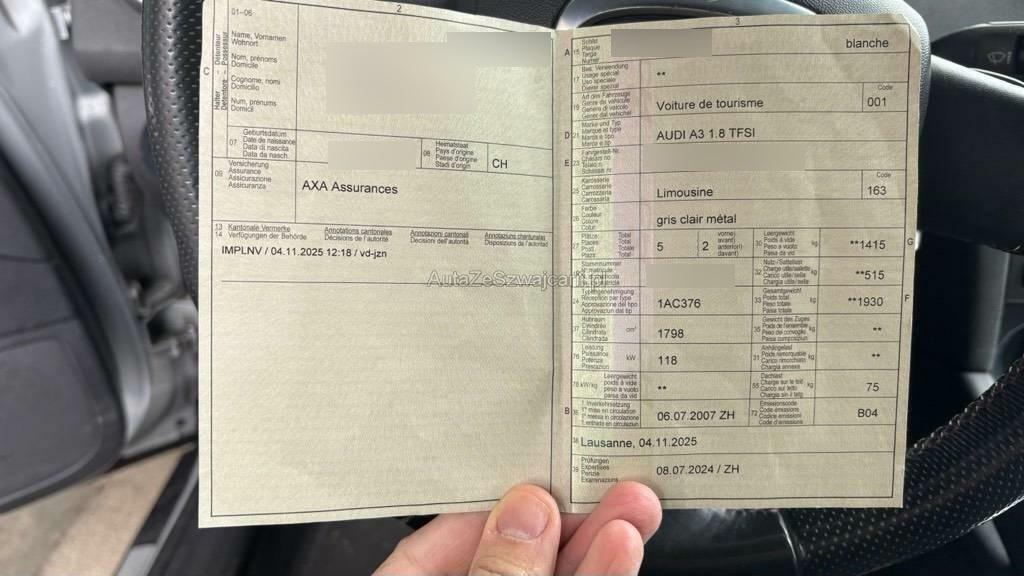 01–06
2
Détenteur
Possessur
Halter
Detentore
C
Name, Vornamen
Wohnort
Nom, prénoms
Domicile
Cognome, nomi
Domicilio
Num, prenums
Domicil
07
Geburtsdatum
Date de naissance
Data di nascita
Data da nasch.
08
Heimatstaat
Pays d'origine
Paese d'origine
Stadi d'origin
CH
09
Versicherung
Assurance
Assicurazione
Assicuranza
AXA Assurances
13 Kantonale Vermerke Annotations cantonales Annotazioni cantonali Annotaziuns chantunalas
14 Verfügungen der Behörde Décisions de l'autorité Decisioni dell'autorità Disposiziuns da l'autoritad
IMPLNV / 04.11.2025 12:18 / vd-jzn
AutaZeSzwajcarii.pl
3
A 15
Schild
Plaque
Targa
Numer
blanche
17
Bes. Verwendung
Usage spécial
Uso speciale
Diever spezial
**
19
Art des Fahrzeugs
Genre de véhicule
Genere di veicolo
Gener dal vehichel
Voiture de tourisme
Code
001
D 21
Marke und Typ
Marque et type
Marca e tipo
Marca e tip
AUDI A3 1.8 TFSI
E 23
Fahrgestell-Nr.
Châssis no
Telaio n.
Schassis nr.
25
Karosserie
Carrosserie
Carrozzeria
Carossaria
Limousine
Code
163
26
Farbe
Couleur
Colore
Colur
gris clair métal
27
Plätze: Total
Places: Total
Posti: Totale
Plazs: Total
5
2
vorne)
avant)
anteriori)
davant)
30
Leergewicht
Poids à vide
Peso a vuoto
Paisa da vid
kg
**1415
G
Stammnummer
N° matricule
32
Nutz-/Sattellast
Charge utile/sellette
Carico utile/sella
Chargia utila/sella
kg
**515
24
Typengenehmigung
Réception par type
Approvazione del tipo
Approvaziun dal tip
1AC376
33
Gesamtgewicht
Poids total
Peso totale
Paisa totala
kg
**1930
F
37
Hubraum
Cylindrée
Cilindrata
Cilindrada
cm³
1798
35
Gewicht des Zuges
Poids de l'ensemble
Peso del convoglio
Paisa cumposiziun
kg
**
76
Leistung
Puissance
Potenza
Prestaziun
kW
118
31
Anhängelast
Poids remorquable
Carico rimorchiato
Chargia annexa
kg
**
78 kW/kg
Leergewicht
poids à vide
peso a vuoto
paisa da vid
**
55
Dachlast
Charge sur le toit
Carico sul tetto
Chargia sin il tetg
kg
75
B 36
1. Inverkehrsetzung
1re mise en circulation
1a messa in circolazione
1. entrada en circulaziun
06.07.2007 ZH
72
Emissionscode
Code émissions
Codice emissioni
Code d'emissiuns
B04
38 Lausanne, 04.11.2025
39
Prüfungen
Expertises
Perizie
Examinaziuns
08.07.2024 / ZH